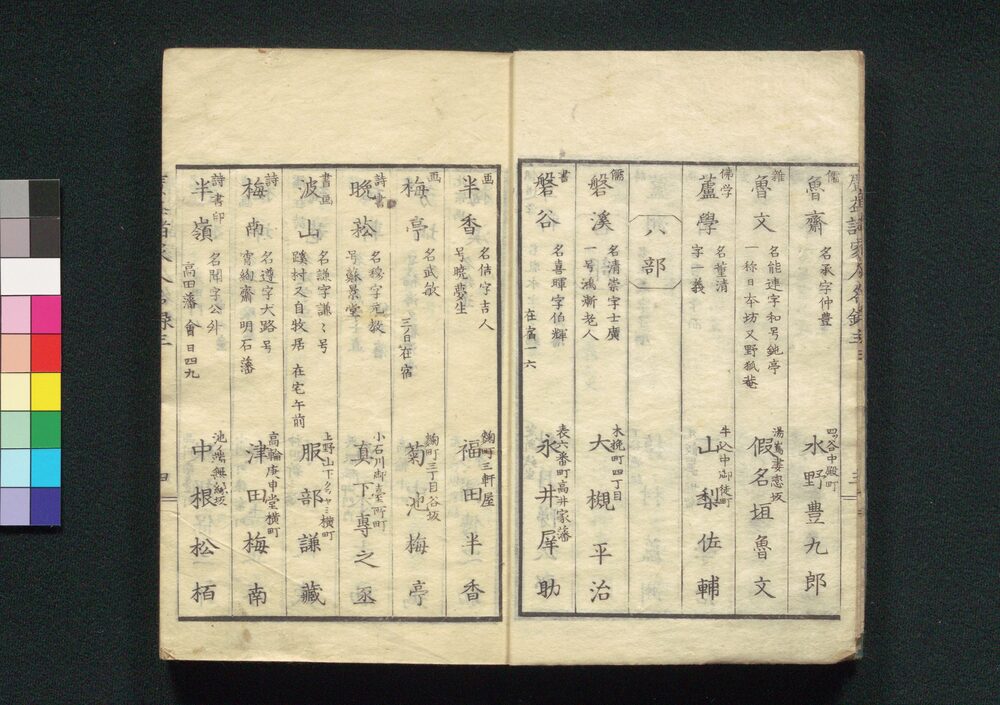 儒 魯齋 名承字仲豊 四ツ谷中殿町 水野豊九郎
雜 魯文 名能連字和号鈍亭 一称日本坊又野狐菴 湯島妻恋坂 假名垣魯文
佛学 蘆學 名董清 字一義 牛込中御徒町 山梨佐輔
部
儒 磐溪 名清崇字士廣 一号鴻漸老人 木挽町四丁目 大槻平治
書 磐谷 名喜暉字伯輝 在宿一六 表六番町高井家藩 永井犀助
画 半香 名佶字吉人 号曉夢生 麹町三軒屋 福田半香
画 梅亭 名武敏 三ノ日在宿 麹町三丁目谷坂 菊池梅亭
詩書 晩菘 名穆字元教 号蘇景堂 小石川御臺所町 真下專之丞
書画 波山 名謙字謙々号 蹊村又自牧居 在宅午前 上野山下クラヤミ横町 服部謙藏
詩 梅南 名遵字大路号 霄絢齋 明石藩 高輪庚申堂横町 津田梅南
詩書印 半嶺 名聞字公外 高田藩 會日四九 池ノ端無縁坂 中根松栢
四